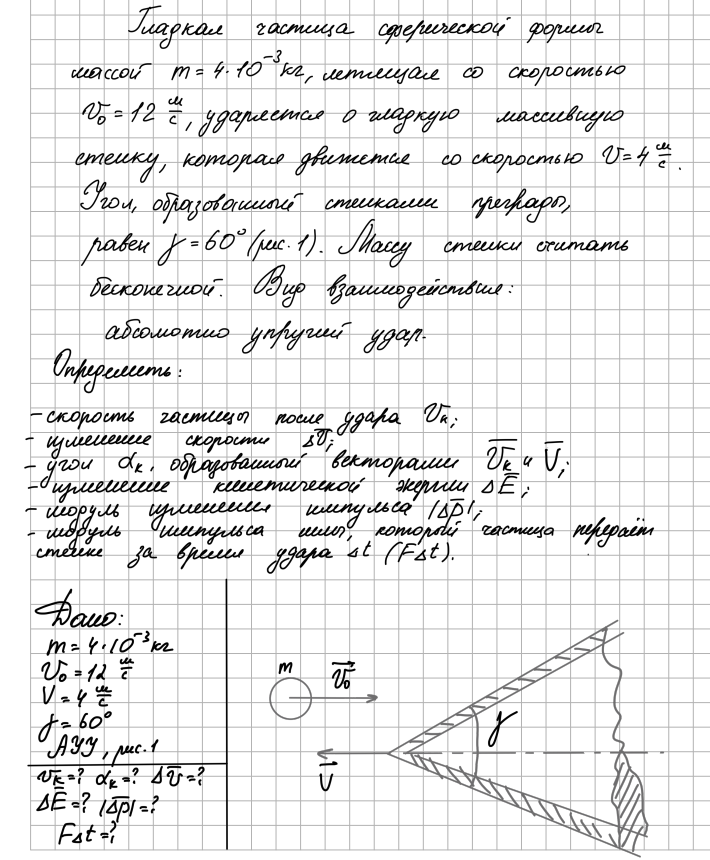 Гладкая частица сферической формы
массой m = 4·10⁻³ кг, летящая со скоростью
v₀ = 12 м/с, ударяется о гладкую массивную
стенку, которая движется со скоростью V = 4 м/с.
Угол, образованный стенками преграды,
равен γ = 60° (рис. 1). Массу стенки считать
бесконечной. Вид взаимодействия:
абсолютно упругий удар.
Определить:
- скорость частицы после удара v̅ₖ;
- изменение скорости Δv̅;
- угол αₖ, образованный векторами v̅ₖ и V̅;
- изменение кинетической энергии ΔE̅;
- модуль изменения импульса |Δp̅|;
- модуль импульса силы, который частица передаёт
стенке за время удара Δt (FΔt).
Дано:
m = 4·10⁻³ кг
v₀ = 12 м/с
V = 4 м/с
γ = 60°
АУУ, рис. 1
v̅ₖ = ? αₖ = ? Δv̅ = ?
ΔE̅ = ? |Δp̅| = ?
FΔt = ?
m
v⃗₀
V⃗
γ